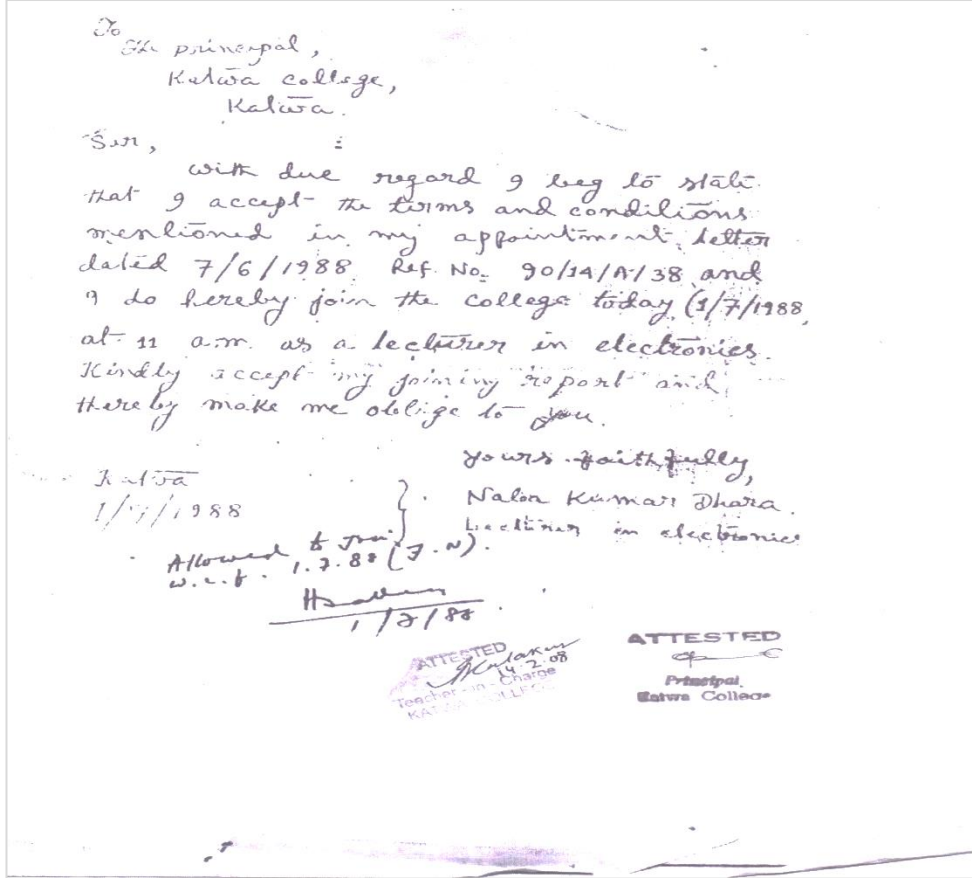 To
The principal,
Katwa college,
Katwa.
Sir,
with due regard I beg to state
that I accept the terms and conditions
mentioned in my appointment letter
dated 7/6/1988 Ref. No. 90/14/A/38 and
I do hereby join the college today (1/7/1988
at 11 a.m. as a lecturer in electronics.
Kindly accept my joining report and
thereby make me oblige to you.
yours faithfully,
Nalin Kumar Dhara.
Lecturer in electronics
Katwa
1/7/1988
Allowed to join
w.e.f. 1.7.88 (F.N).
1/7/88
ATTESTED
14.2.08
Teacher-in-Charge
KATWA COLLEGE
ATTESTED
Principal
Katwa College